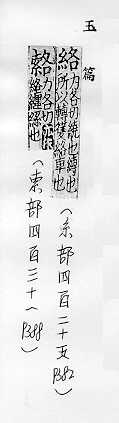 玉篇
絡力各切繞也縛也所以轉籰絡車也
(糸部四百二十五 P382)
力各切
絡纏縲也
部四百三十一 P388)